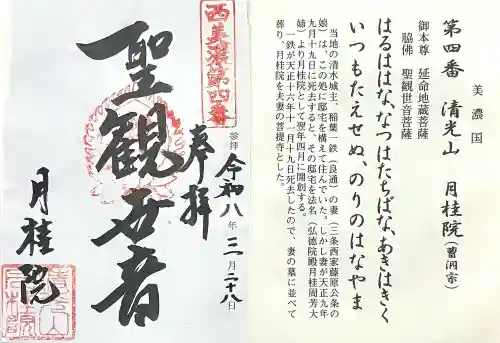 美濃国
第四番 清光山 月桂院(曹洞宗)
御本尊 延命地蔵菩薩
脇佛 聖観世音菩薩
はるははな、なつはたちばな、あきはきく
いつもたえせぬ、のりのはなやま
当地の清水城主、稲葉一鉄(良通)の妻(三条西家藤原公条の
娘)は、この処に邸宅を構えて住んでいた。しかし妻が天正九年
九月十九日に死去すると、その邸宅を法名(弘德院殿月桂周芳大
姉)より月桂院として翌年四月に開創する。
一鉄が天正十六年十一月十九日死去したので、妻の墓に並べて
葬り、月桂院を夫妻の菩提寺とした。
西美濃第四番
奉拝
参拝 令和八年 二月二十八日
聖観世音
月桂院